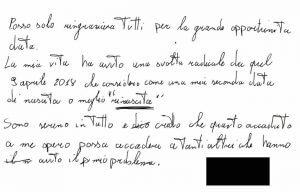 Posso solo ringraziare Tutti per la grande opportunità
data.
La mia vita ha avuto una svolta radicale da quel
9 aprile 2018 che considero come una mia seconda data
di nascita o meglio "rinascita"
Sono sereno in tutto e credo che questo accaduto
a me spero possa accadere a tanti altri che hanno
avuto il mio problema.